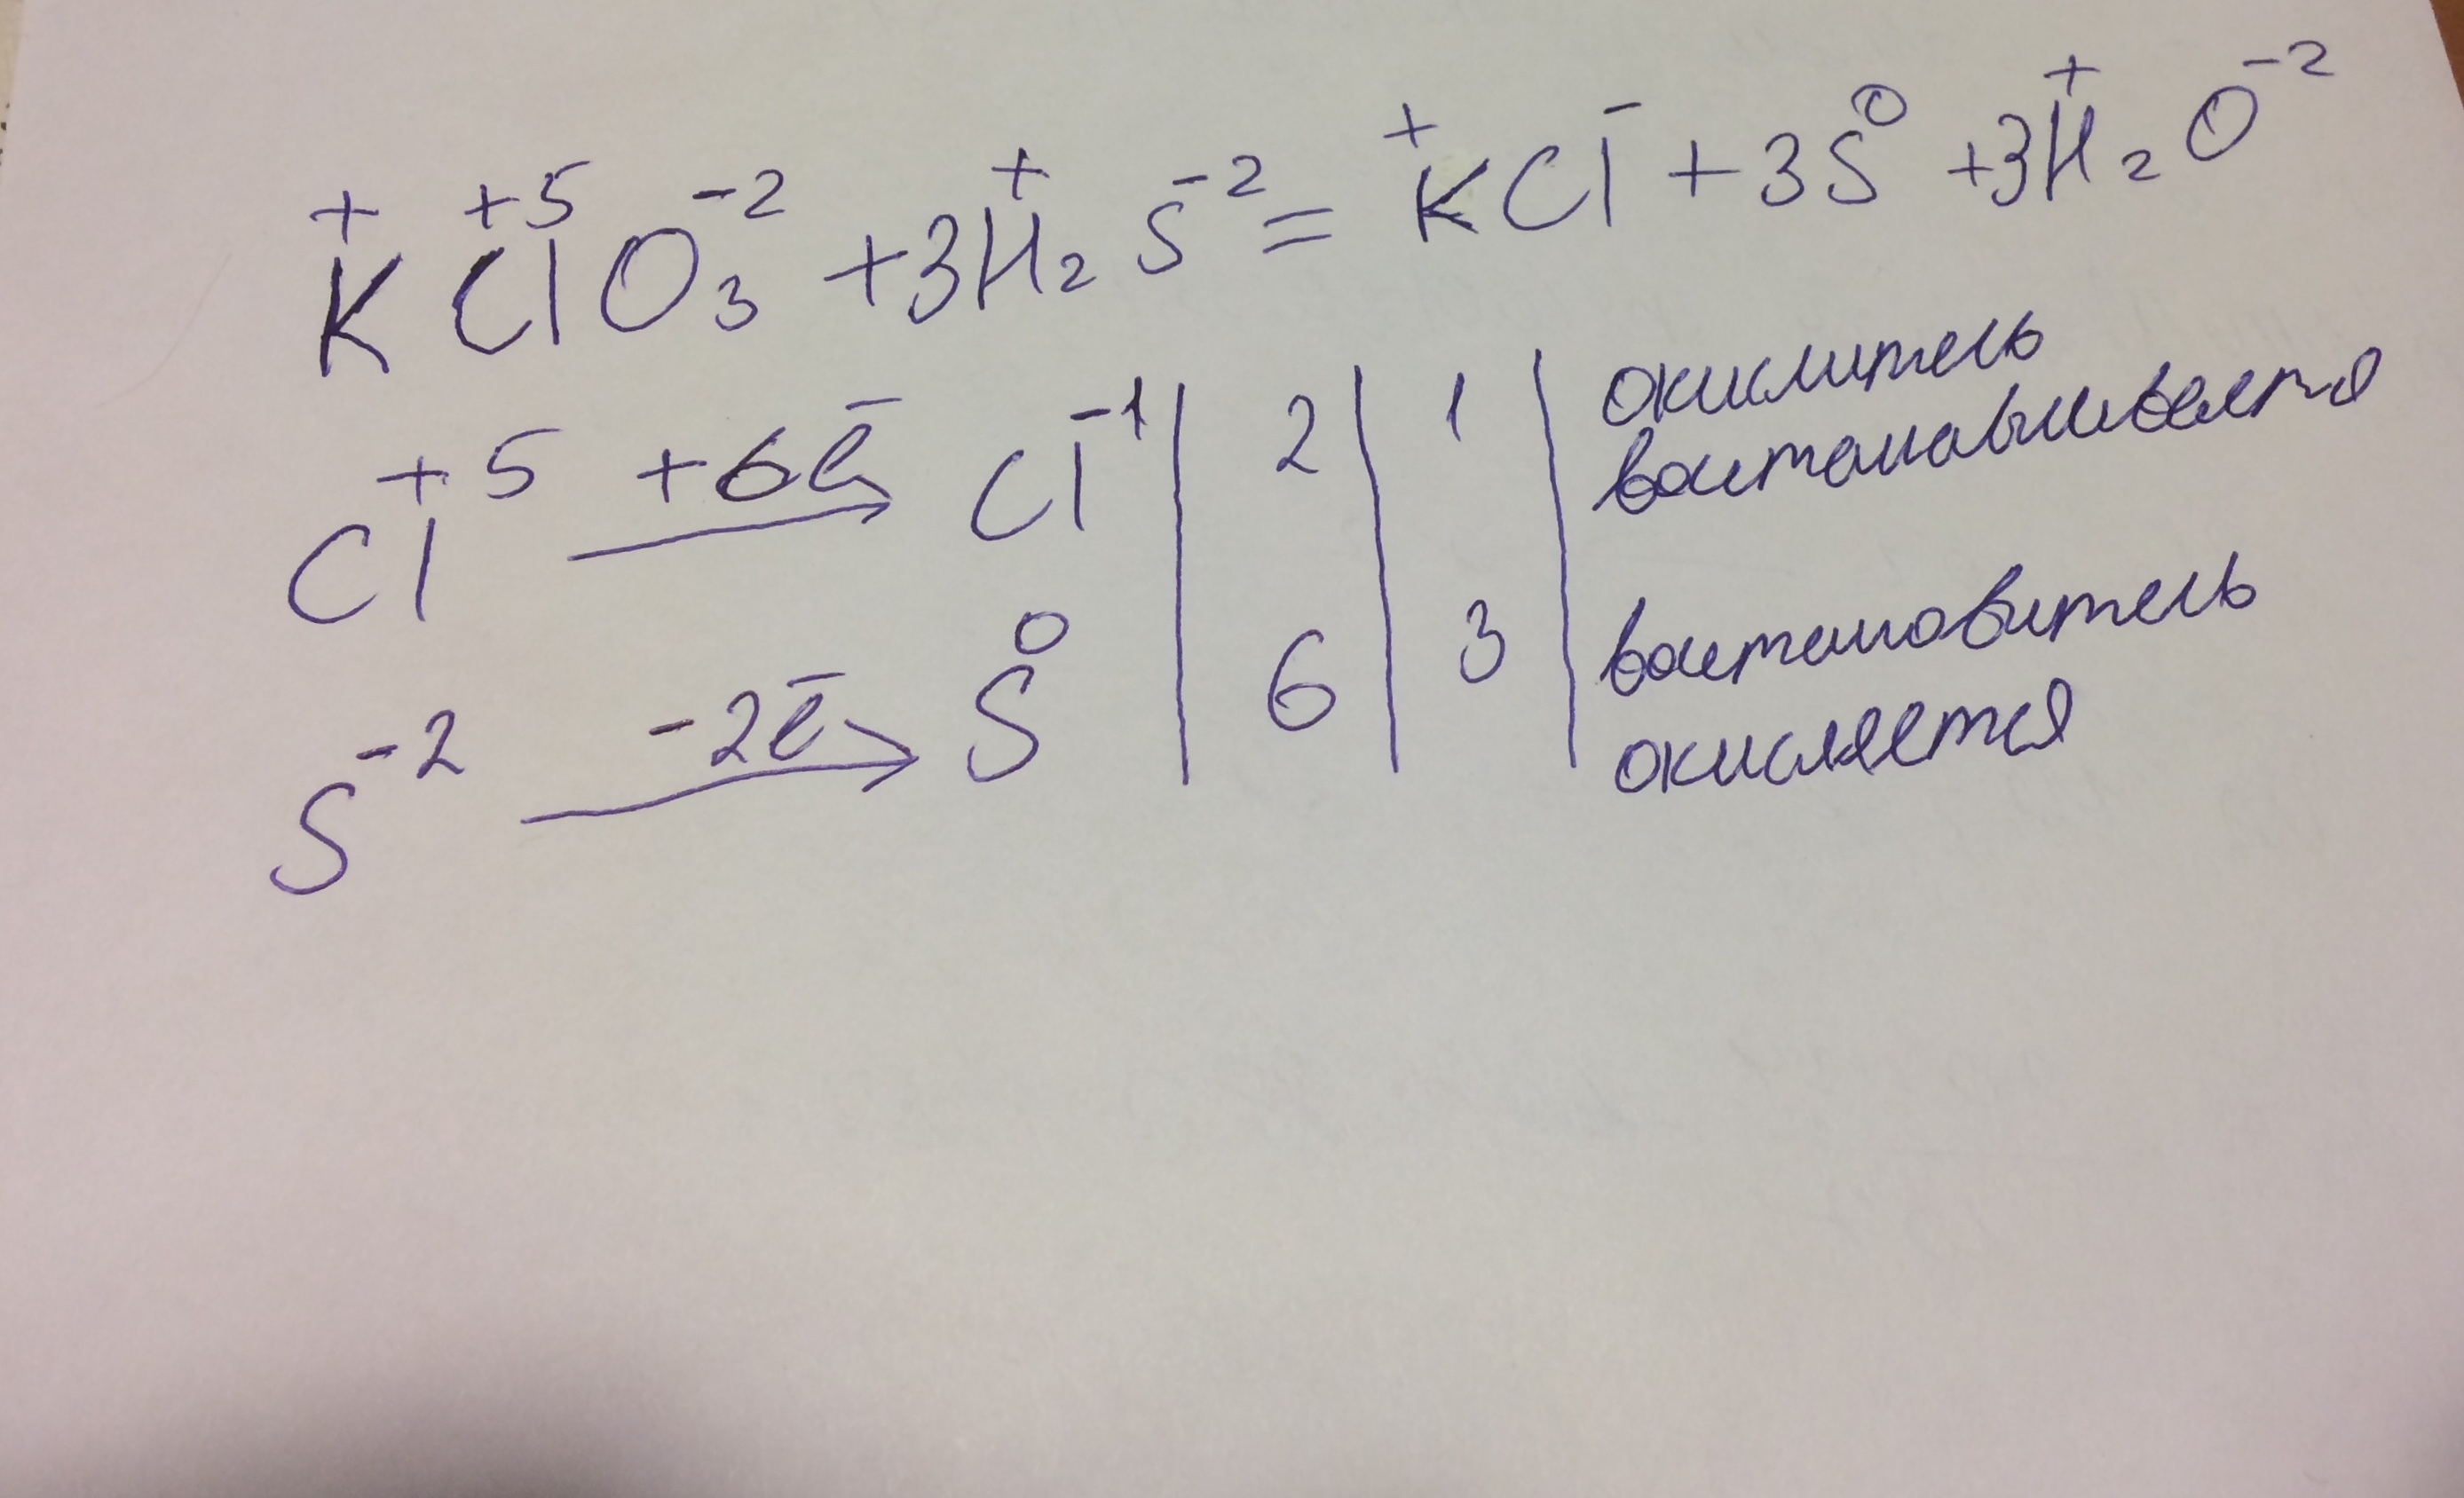 K⁺Cl⁺⁵O₃⁻² + 3H₂⁺S⁻² = K⁺Cl⁻ + 3S⁰ + 3H₂⁺O⁻²
Cl⁺⁵ +6e̅ → Cl⁻¹ | 2 | 1 | окислитель
востанавливается
S⁻² -2e̅ → S⁰ | 6 | 3 | востановитель
окисляется